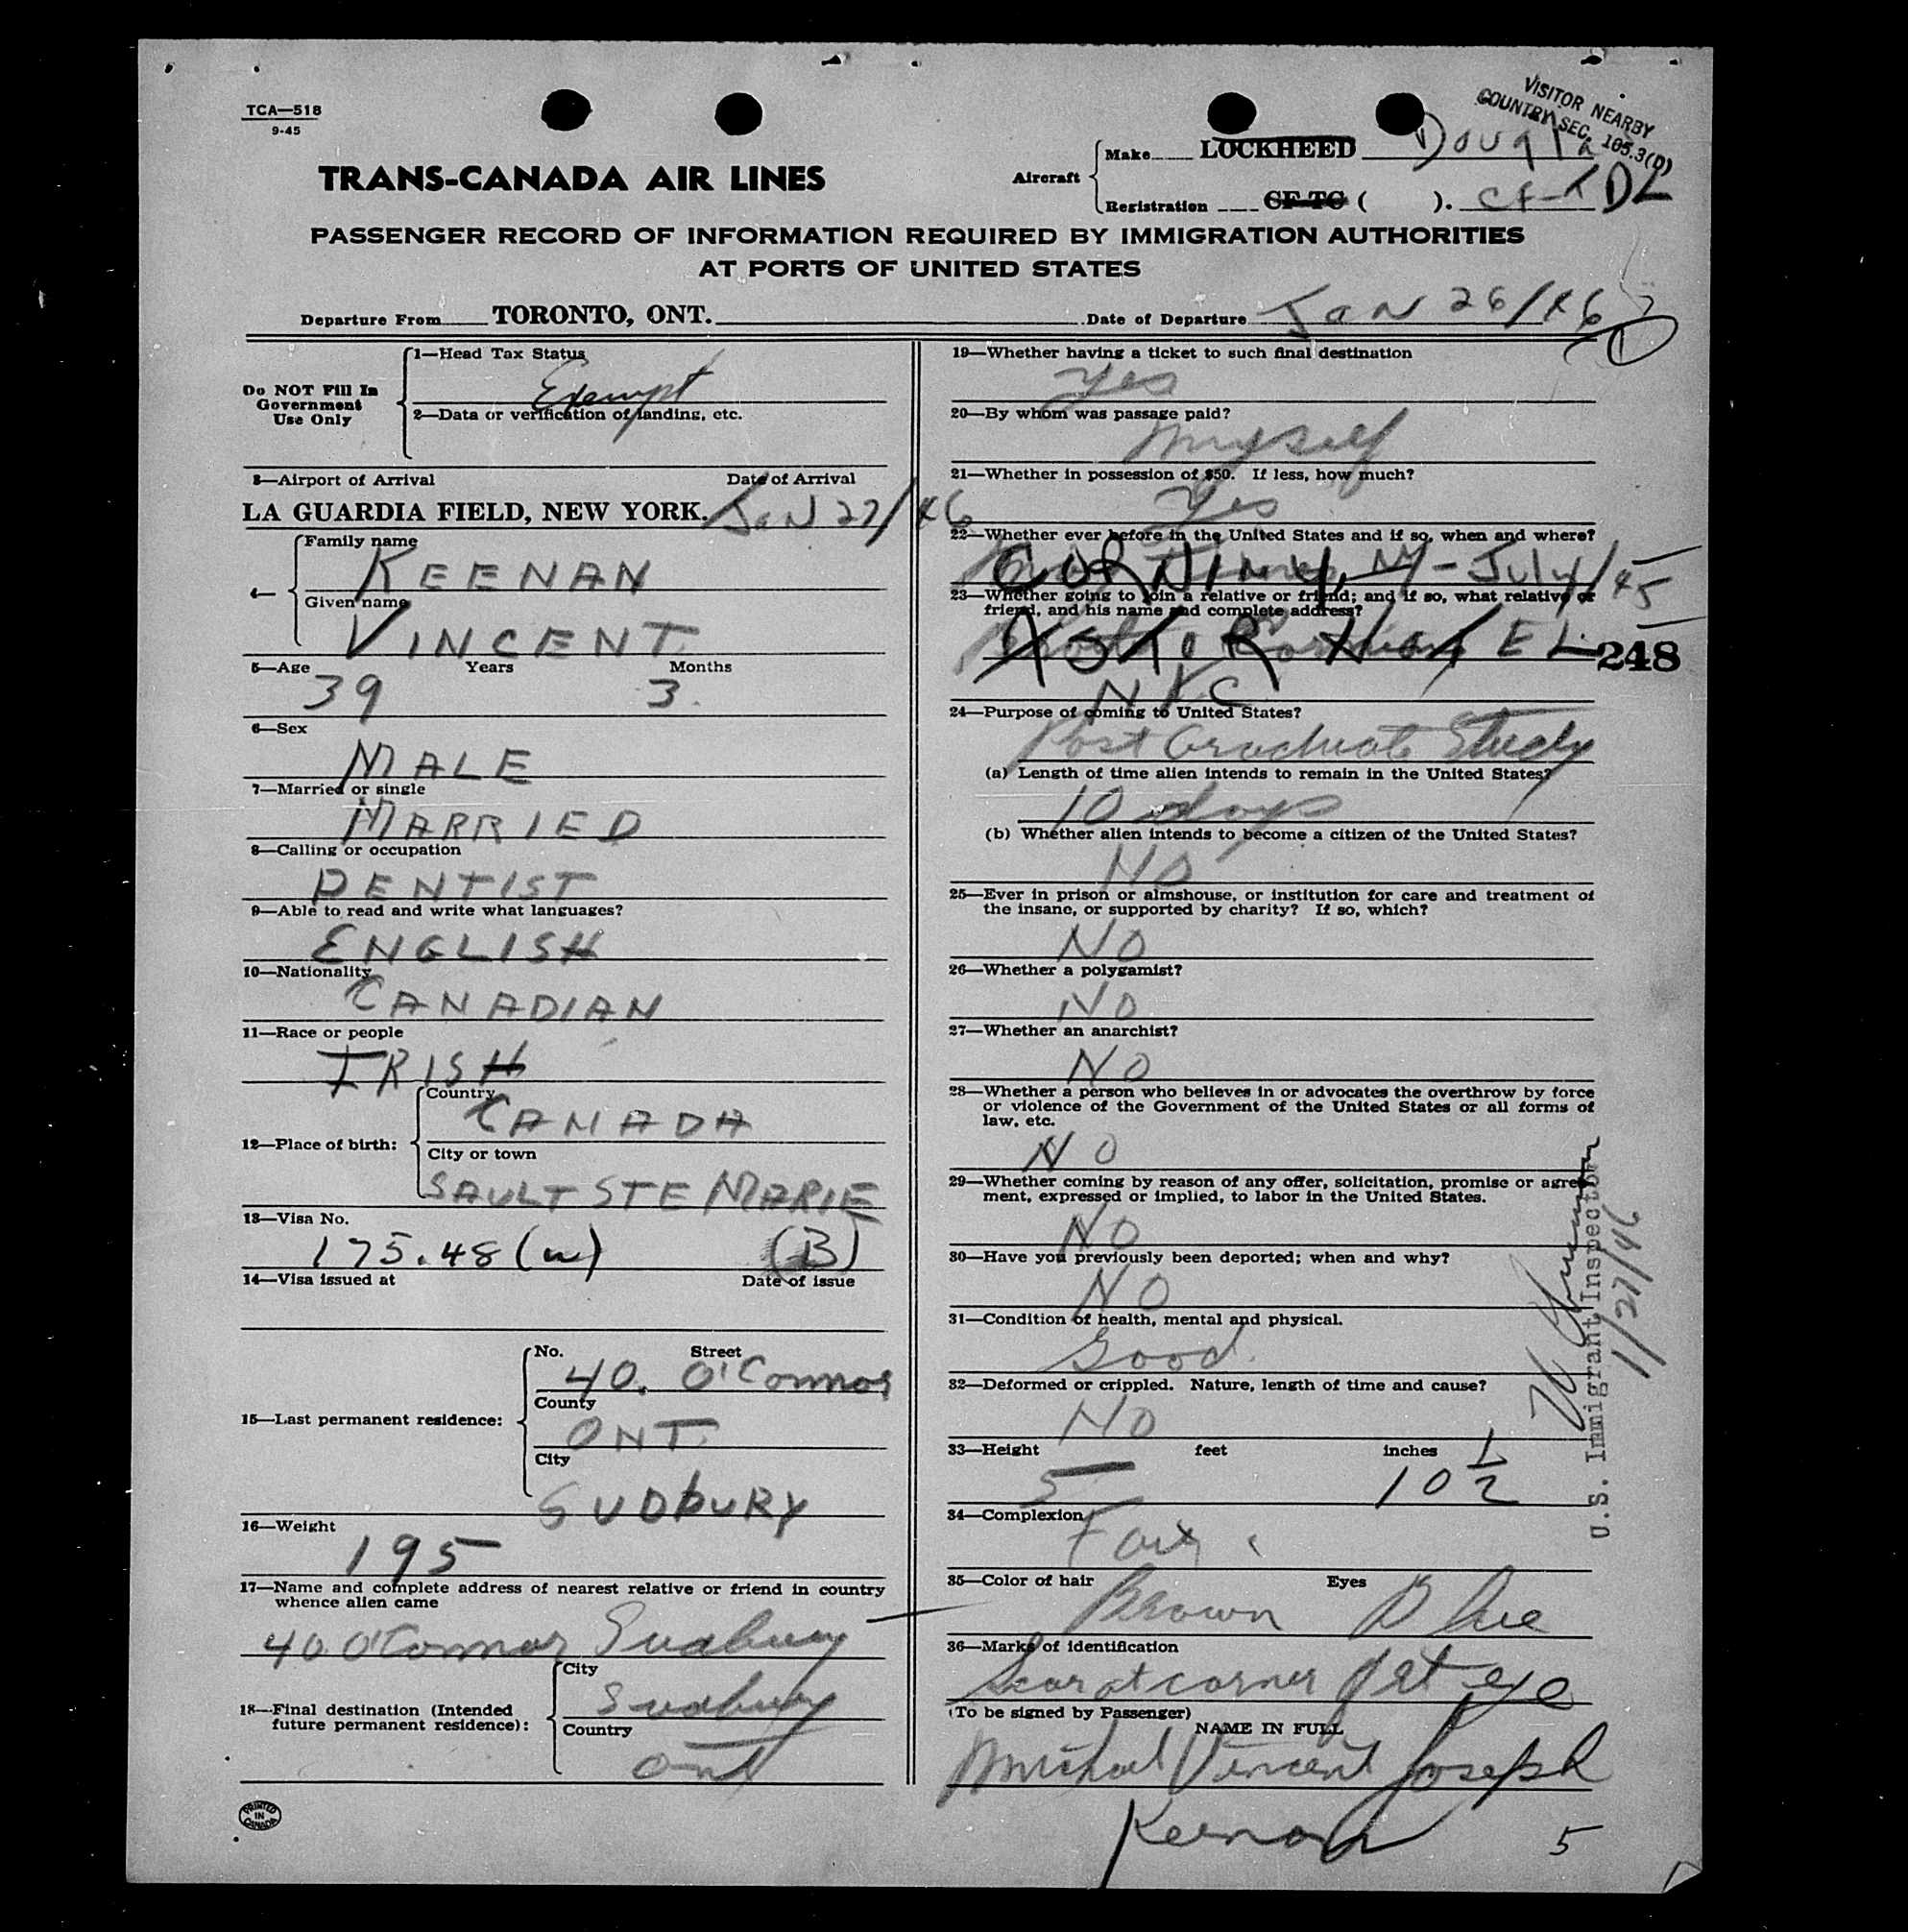 TCA—518
9-45
VISITOR NEARBY
COUNTRY SEC. 165.3(D)
TRANS-CANADA AIR LINES
Aircraft
Make LOCKHEED Douglas
Registration CF-TC ( ). CF-TDL
PASSENGER RECORD OF INFORMATION REQUIRED BY IMMIGRATION AUTHORITIES
AT PORTS OF UNITED STATES
Departure From TORONTO, ONT. Date of Departure Jan 26/46
Do NOT Fill In
Government
Use Only
1—Head Tax Status
Exempt
2—Data or verification of landing, etc.
3—Airport of Arrival Date of Arrival
LA GUARDIA FIELD, NEW YORK. Jan 27/46
4—
Family name
KEENAN
Given name
VINCENT
5—Age Years Months
39 3.
6—Sex
MALE
7—Married or single
MARRIED
8—Calling or occupation
DENTIST
9—Able to read and write what languages?
ENGLISH
10—Nationality
CANADIAN
11—Race or people
IRISH
12—Place of birth:
Country
CANADA
City or town
SAULT STE MARIE
13—Visa No.
175.48 (w) (B)
14—Visa issued at Date of issue
15—Last permanent residence:
No. Street
40. O'Connor
County
ONT.
City
SUDbURY
16—Weight
195
17—Name and complete address of nearest relative or friend in country
whence alien came
40 O'Connor Sudbury
18—Final destination (Intended
future permanent residence):
City
Sudbury
Country
Ont
PRINTED
IN
CANADA
19—Whether having a ticket to such final destination
Yes
20—By whom was passage paid?
Myself
21—Whether in possession of $50. If less, how much?
Yes
22—Whether ever before in the United States and if so, when and where?
CORNING, NY - July/45
23—Whether going to join a relative or friend; and if so, what relative or
friend, and his name and complete address?
ASTOR HOTEL
248
NYC
24—Purpose of coming to United States?
Post Graduate Study
(a) Length of time alien intends to remain in the United States?
10 days
(b) Whether alien intends to become a citizen of the United States?
NO
25—Ever in prison or almshouse, or institution for care and treatment of
the insane, or supported by charity? If so, which?
NO
26—Whether a polygamist?
NO
27—Whether an anarchist?
NO
28—Whether a person who believes in or advocates the overthrow by force
or violence of the Government of the United States or all forms of
law, etc.
NO
29—Whether coming by reason of any offer, solicitation, promise or agreement,
ment, expressed or implied, to labor in the United States.
NO
30—Have you previously been deported; when and why?
NO
31—Condition of health, mental and physical.
Good
32—Deformed or crippled. Nature, length of time and cause?
NO
33—Height feet inches
5 10 1/2
34—Complexion
Fair
35—Color of hair Eyes
Brown Blue
36—Marks of identification
Scar at corner of rt eye
(To be signed by Passenger)
NAME IN FULL
Michael Vincent Joseph
Keenan
5
U.S. Immigrant Inspector
1/27/46